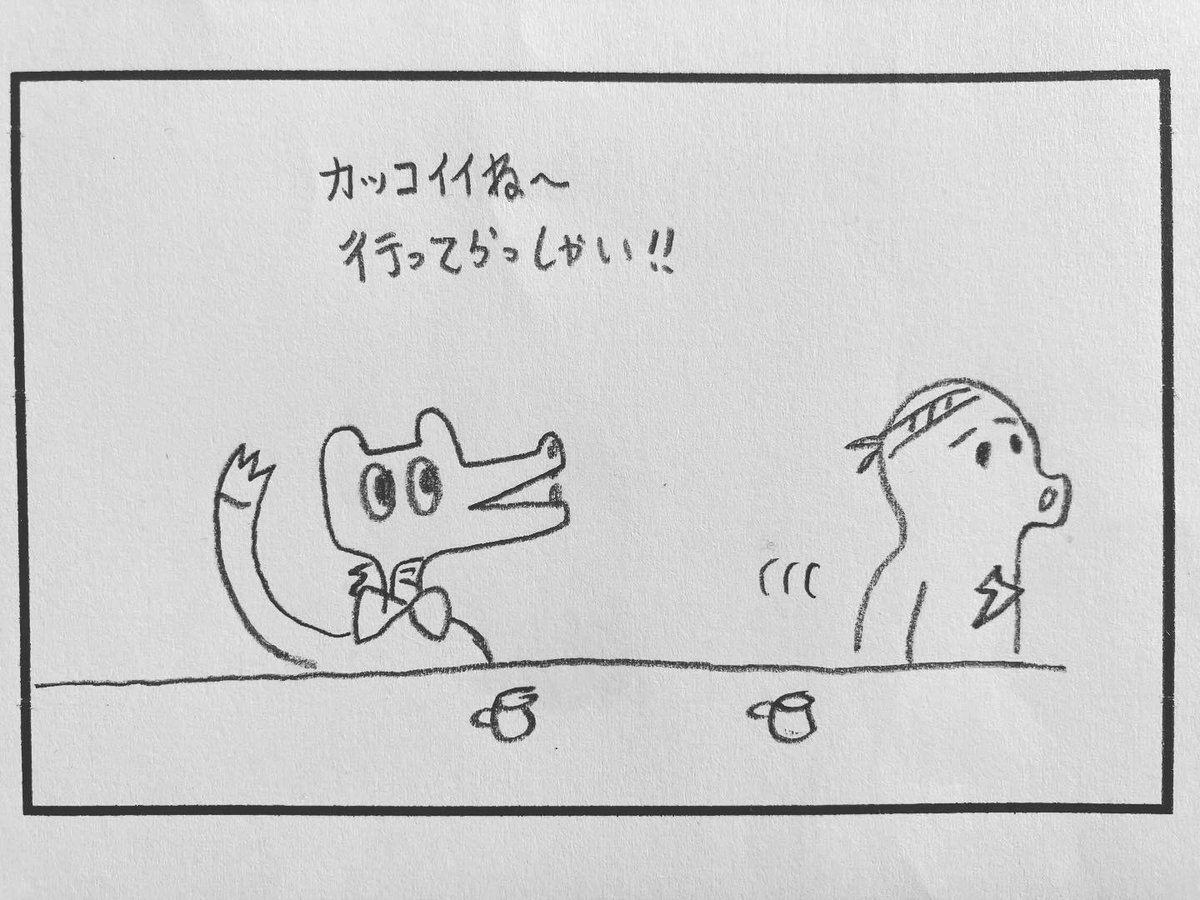 カッコイイね〜
行ってらっしゃい!!